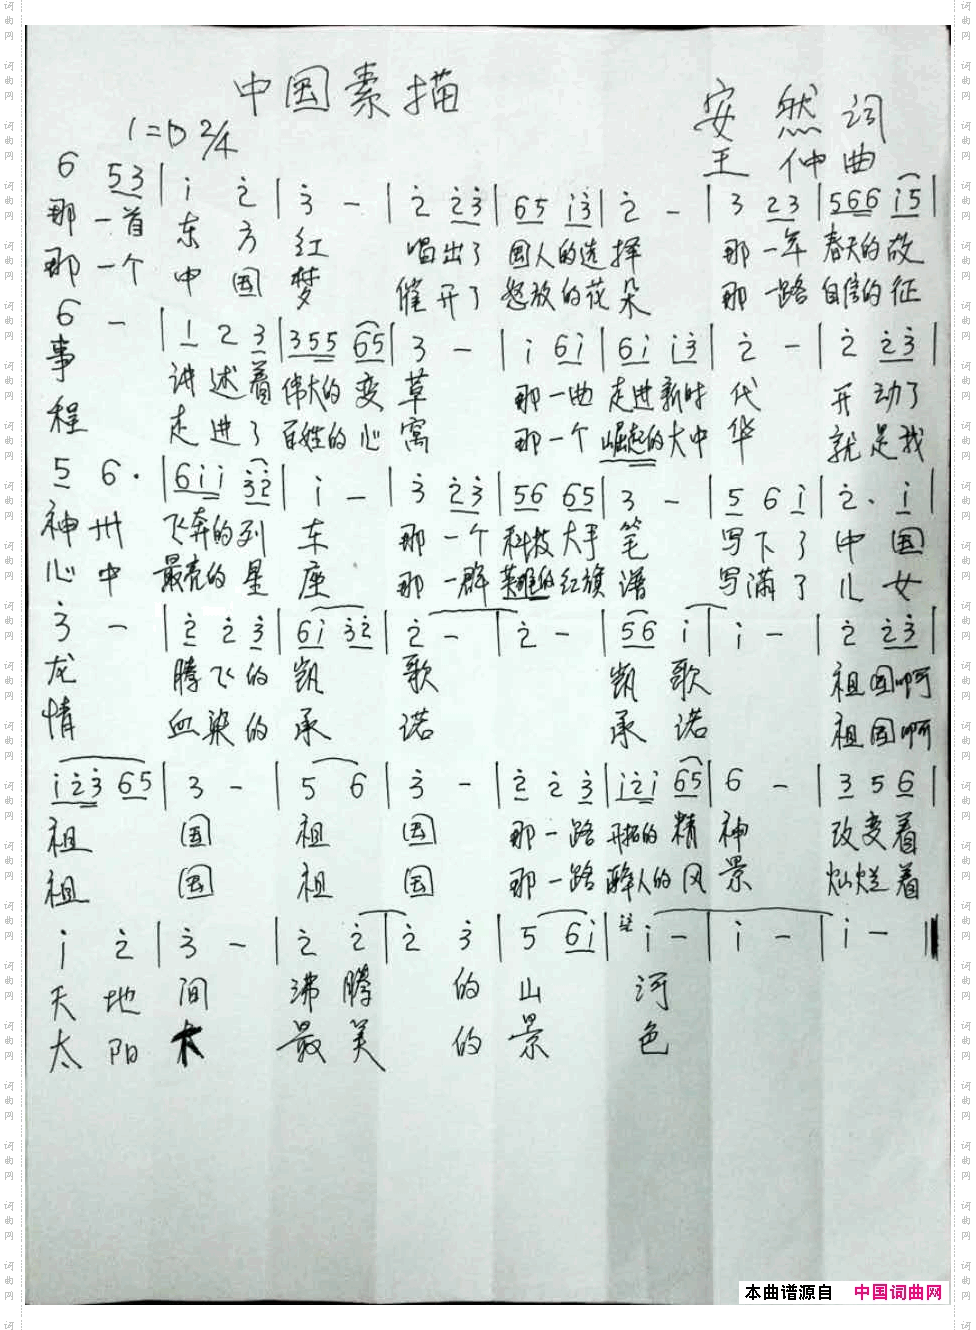 中国素描
安然词
1=D 2/4
王仲曲
6 53 | i 2 | 3 - | 2 23 | 65 i3 | 2 - | 3 23 | 566 i5 |
那一首东方红 唱出了国人的选择 那一年春天的故
那一个中国梦 催开了怒放的花朵 那一路自信的征
6 - | 1 2 3 | 355 65 | 3 - | i 6i | 6i i3 | 2 - | 2 23 |
事 讲述着伟大的变草 那一曲走进新时代 开动了
程 走进了百姓的心窝 那一个崛起的大中华 就是我
5 6. | 6ii 32 | i - | 3 23 | 56 65 | 3 - | 5 6 i | 2. i |
神州 飞奔的列车 那一个科技大手笔 写下了中国
心中 最亮的星座 那一群英雄的红旗谱 写满了儿女
3 - | 2 2 3 | 6i 32 | 2 - | 2 - | 56 i | i - | 2 23 |
龙 腾飞的凯歌 凯歌 祖国啊
情 血染的承诺 承诺 祖国啊
i23 65 | 3 - | 5 6 | 3 - | 2 2 3 | i2i 65 | 6 - | 3 5 6 |
祖国 祖国 那一路开拓的精神 改变着
祖国 祖国 那一路醉人的风景 灿烂着
i 2 | 3 - | 2 2 | 2 3 | 5 6i | i - | i - | i - ||
天地间 沸腾的山河
太阳 最美的景色
本曲谱源自 中国词曲网